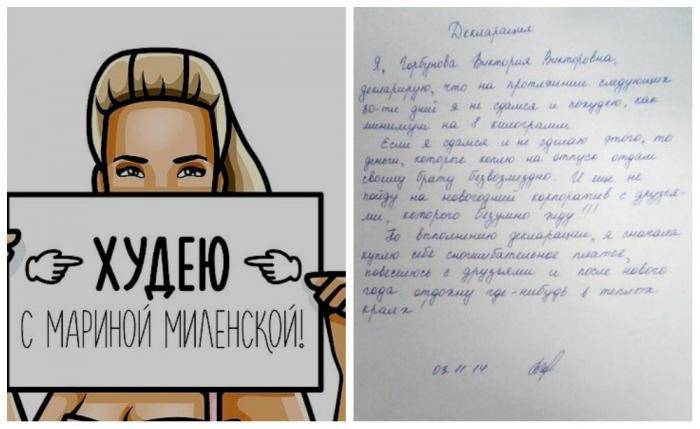 ХУДЕЮ
С МАРИНОЙ МИЛЕНСКОЙ!
Декларация
Я, Горбунова Виктория Викторовна,
декларирую, что на протяжении следующих
50-ти дней я не сдамся и похудею, как
минимум на 8 килограмм
Если я сдамся и не сделаю этого, то
деньги, которые коплю на отпуск отдам
своему брату безвозмездно. И еще не
пойду на новогодний корпоратив с друзья-
ми, которого безумно жду!!!
По выполнению декларации, я сначала
куплю себе сногсшибательное платье,
повеселюсь с друзьями и после нового
года отдохну где-нибудь в теплых
краях!
03.11.14